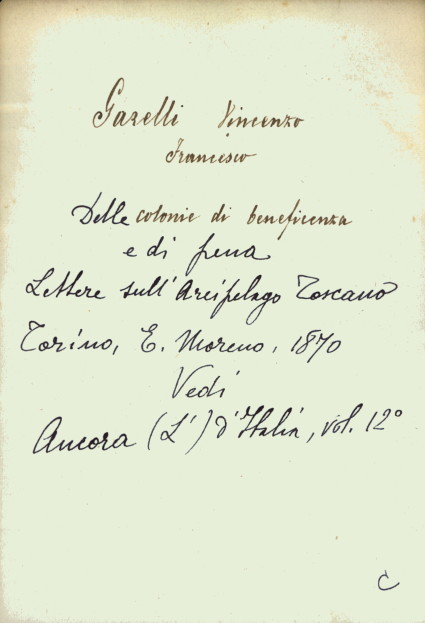 Garelli Vincenzo
Francesco
Delle colonie di beneficenza
e di pena
Lettere sull'Arcipelago Toscano
Torino, E. Moreno, 1870
Vedi
Ancora (L') d'Italia, vol. 12°
C